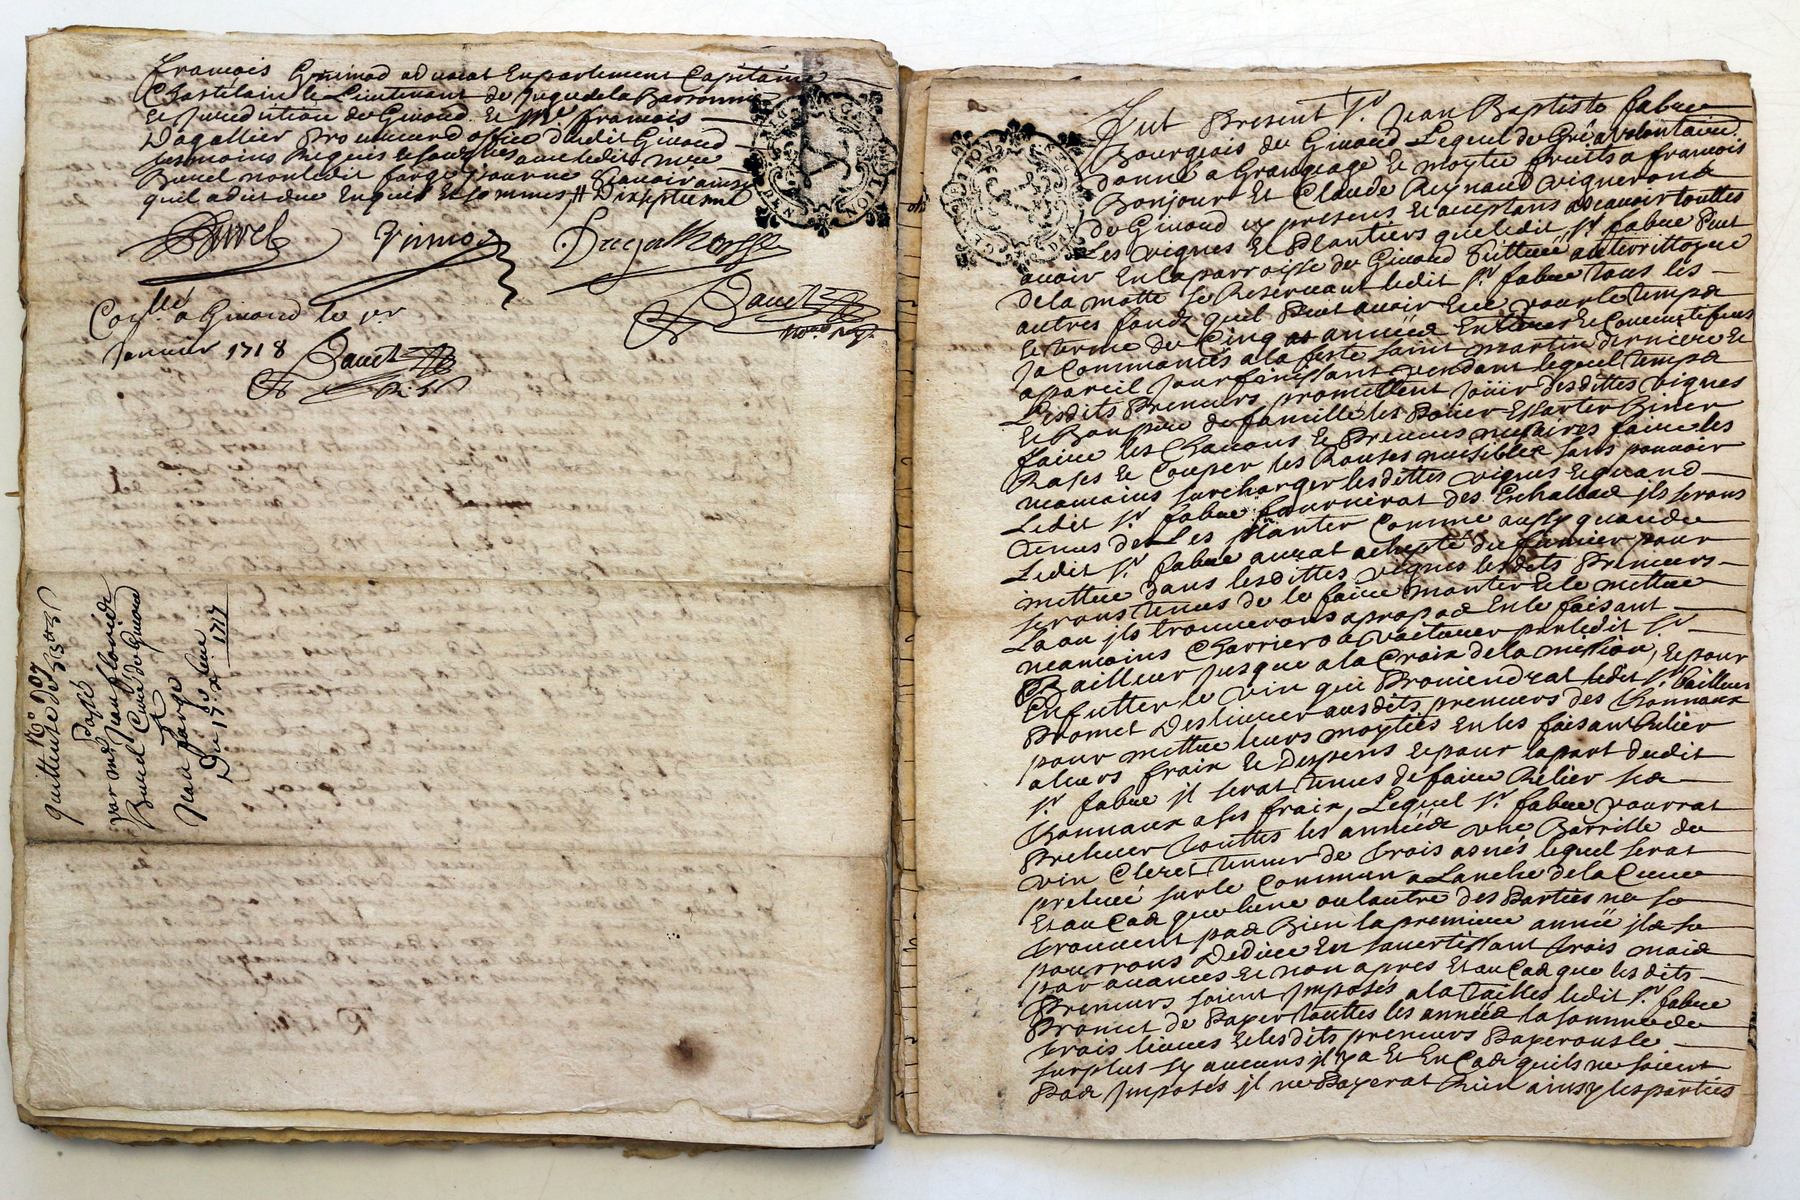 françois Grimod advocat En parlement Capitaine
Chastelain le Lieutenant de Juge de la Barronnie
Et Jurediction de Givord Et Me françois
Dagallier Procureur d office dudit Givord
tesmoins Requis Et soussignes avec ledit mre
Buvel non ledit farge pour ne Scavoir ainsi
quil a dit de ce Enquis Et sommes
Buvel
Conlle a Givord le pr
Janvier 1718
No 107
quittance de
Passé
par mre Jean
Buvel Curé de Givord
A
Jean farge
Du 17e xbre
1717
fut Present Sr. Jean Baptiste fabre
Bourgeois de Givord Lequel de Gré a volontaire
donné a Grangeage Et moytié fruits a françois
Bonjour Et Claude Reynaud vignerons
de Givord icy presens Et acceptans ascavoir touttes
Les vignes Et Plantiers que ledit Sr. fabre Peut
avoir En la parroisse de Givord Scittuée au territtoyre
de la motte Se Reservant ledit Sr. fabre tous les
autres fonds quil Peut avoir Et ce pour le temps
Et terme de Cinq années Entieres Et Consecutifves
ja Commancés a la feste saint martin derniere Et
a pareil jour finissant Pendant lequel temps
Lesdits Preneurs promettent jouir desdittes vignes
En Bon pere de famille les Poüer Essarter Biner
faire les Chavons Et Preveus necessaires faire les
Rases Et Couper les Ronses nuisibles sans pouvoir
neamoins surcharger lesdittes vignes Et quand
Ledit Sr. fabre fournirat des Eschallas ils serons
tenus de Les planter Comme aussy quand
Ledit Sr. fabre aurat achepté du fumier pour
mettre dans lesdittes vignes lesdits Preneurs
serons tenus de le faire monter Et le mettre
La ou jls trouverons apropos En le faisant
neamoins Charrier a voiturer par ledit Sr.
Bailleur jusque a la Croix de la mission, Et pour
Enfutter le vin qui Proviendrat ledit Sr. Bailleur
Promet Deslivrer ausdits preneurs des thonnaux
pour mettre leurs moytiés En les faisant Relier
a leurs frais Et despens Et pour la part dudit
Sr. fabre jl serat tenus de faire Relier ses
thonnaux a ses frais, Lequel Sr. fabre pourrat
Prelever touttes les années une Barrille de
vin Cleret teneur de trois asnés lequel serat
prelevé sur le Commun a Lanche de la Cuve
Et au Cas que lune ou lautre des Parties ne se
trouvent pas Bien la premiere année jls se
pourrons Dedire En savertissant trois mois
par avances Et non apres Et au Cas que lesdits
Preneurs soient Jmposés a la tailles ledit Sr. fabre
Promet de Payer touttes les années la somme de
trois livres Et lesdits preneurs Payerons le
surplus sy aucuns jl y a Et En Cas quils ne soient
Pas Jmposés jl ne Payerat Rien ainsy les parties